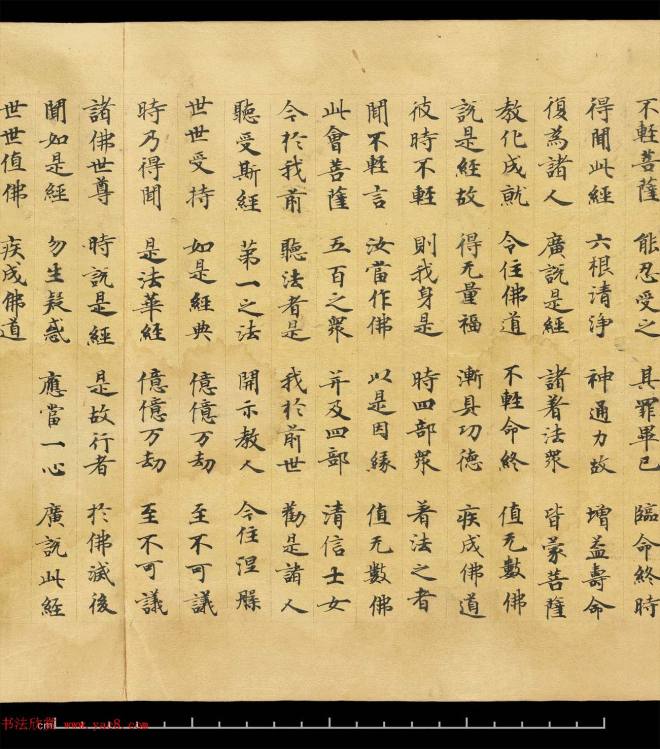 不軽菩薩 能忍受之 其罪畢已 臨命終時
得聞此經 六根清淨 神通力故 增益壽命
復為諸人 廣說是經 諸著法衆 皆蒙菩薩
教化成就 令住佛道 不軽命終 值无數佛
說是經故 得无量福 漸具功德 疾成佛道
彼時不軽 則我身是 時四部衆 著法之者
聞不軽言 汝當作佛 以是因緣 值无數佛
此會菩薩 五百之衆 并及四部 清信士女
今於我前 聽法者是 我於前世 勸是諸人
聽受斯經 第一之法 開示教人 令住涅槃
世世受持 如是經典 億億万劫 至不可議
時乃得聞 是法華經 億億万劫 至不可議
諸佛世尊 時說是經 是故行者 於佛滅後
聞如是經 勿生疑惑 應當一心 廣說此經
世世值佛 疾成佛道
cm
书法欣赏 www.yac8.com